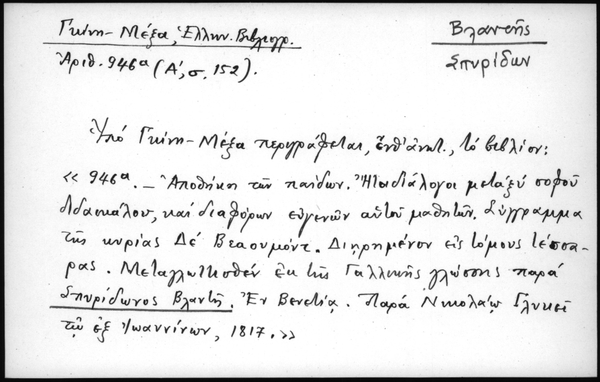 Γκίνη-Μέξα, Ἑλλην. Βιβλιογρ.
Ἀριθ. 946α (Α΄, σ. 152).
Βλαντῆς
Σπυρίδων
Ὑπό Γκίνη-Μέξα περιγράφεται, ἔνθ' ἀνωτ., τό βιβλίον:
« 946α. — Ἀποθήκη τῶν παίδων. Ἤτοι διάλογοι μεταξύ σοφοῦ
διδασκάλου, καί διαφόρων εὐγενῶν αὐτοῦ μαθητῶν. Σύγγραμμα
τῆς κυρίας Δέ Βεαουμόντ. Διῃρημένον εἰς τόμους τέσσα-
ρας. Μεταγλωττισθέν ἐκ τῆς Γαλλικῆς γλώσσης παρά
Σπυρίδωνος Βλαντῆ. Ἐν Βενετίᾳ. Παρά Νικολάῳ Γλυκεῖ
τῷ ἐξ Ἰωαννίνων, 1817. »